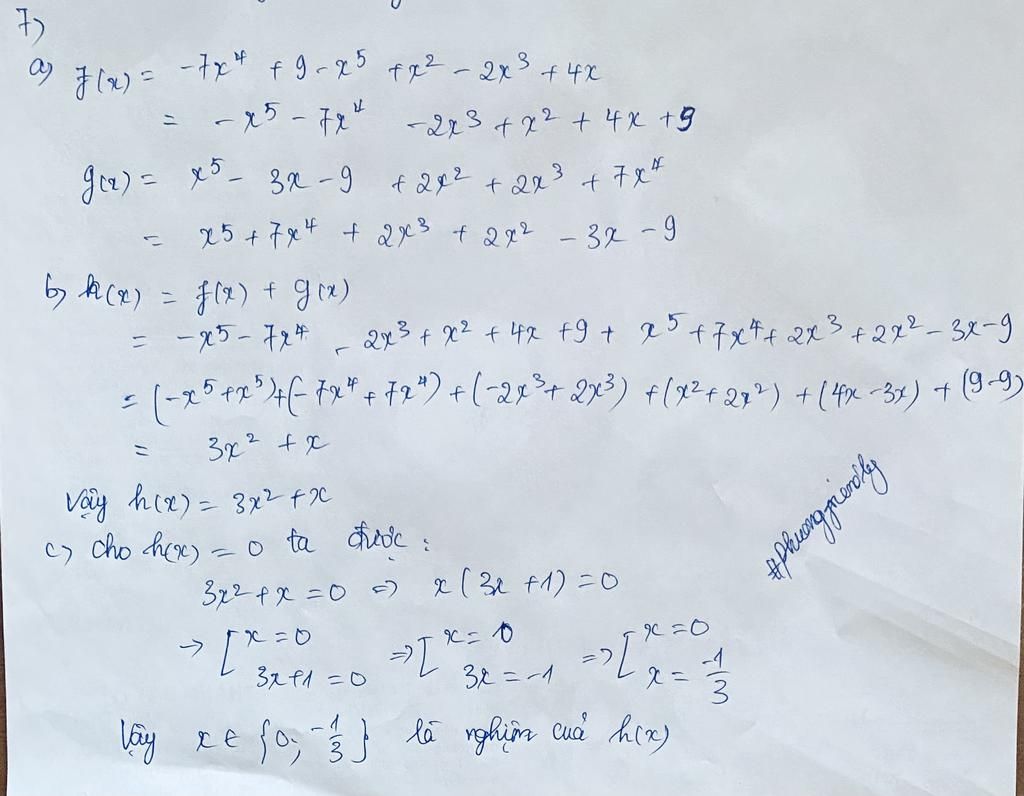 7)
a) f(x) = -7x⁴ + 9 - x⁵ + x² - 2x³ + 4x
= -x⁵ - 7x⁴ - 2x³ + x² + 4x + 9
g(x) = x⁵ - 3x - 9 + 2x² + 2x³ + 7x⁴
= x⁵ + 7x⁴ + 2x³ + 2x² - 3x - 9
b) h(x) = f(x) + g(x)
= -x⁵ - 7x⁴ - 2x³ + x² + 4x + 9 + x⁵ + 7x⁴ + 2x³ + 2x² - 3x - 9
= (-x⁵ + x⁵) + (-7x⁴ + 7x⁴) + (-2x³ + 2x³) + (x² + 2x²) + (4x - 3x) + (9 - 9)
= 3x² + x
Vậy h(x) = 3x² + x
c) cho h(x) = 0 ta được :
3x² + x = 0 => x(3x + 1) = 0
→ [ x = 0 => [ x = 0 => [ x = 0
3x + 1 = 0 3x = -1 x = -1/3
Vậy x ∈ {0; -1/3} là nghiệm của h(x)
#Phuongfriendly